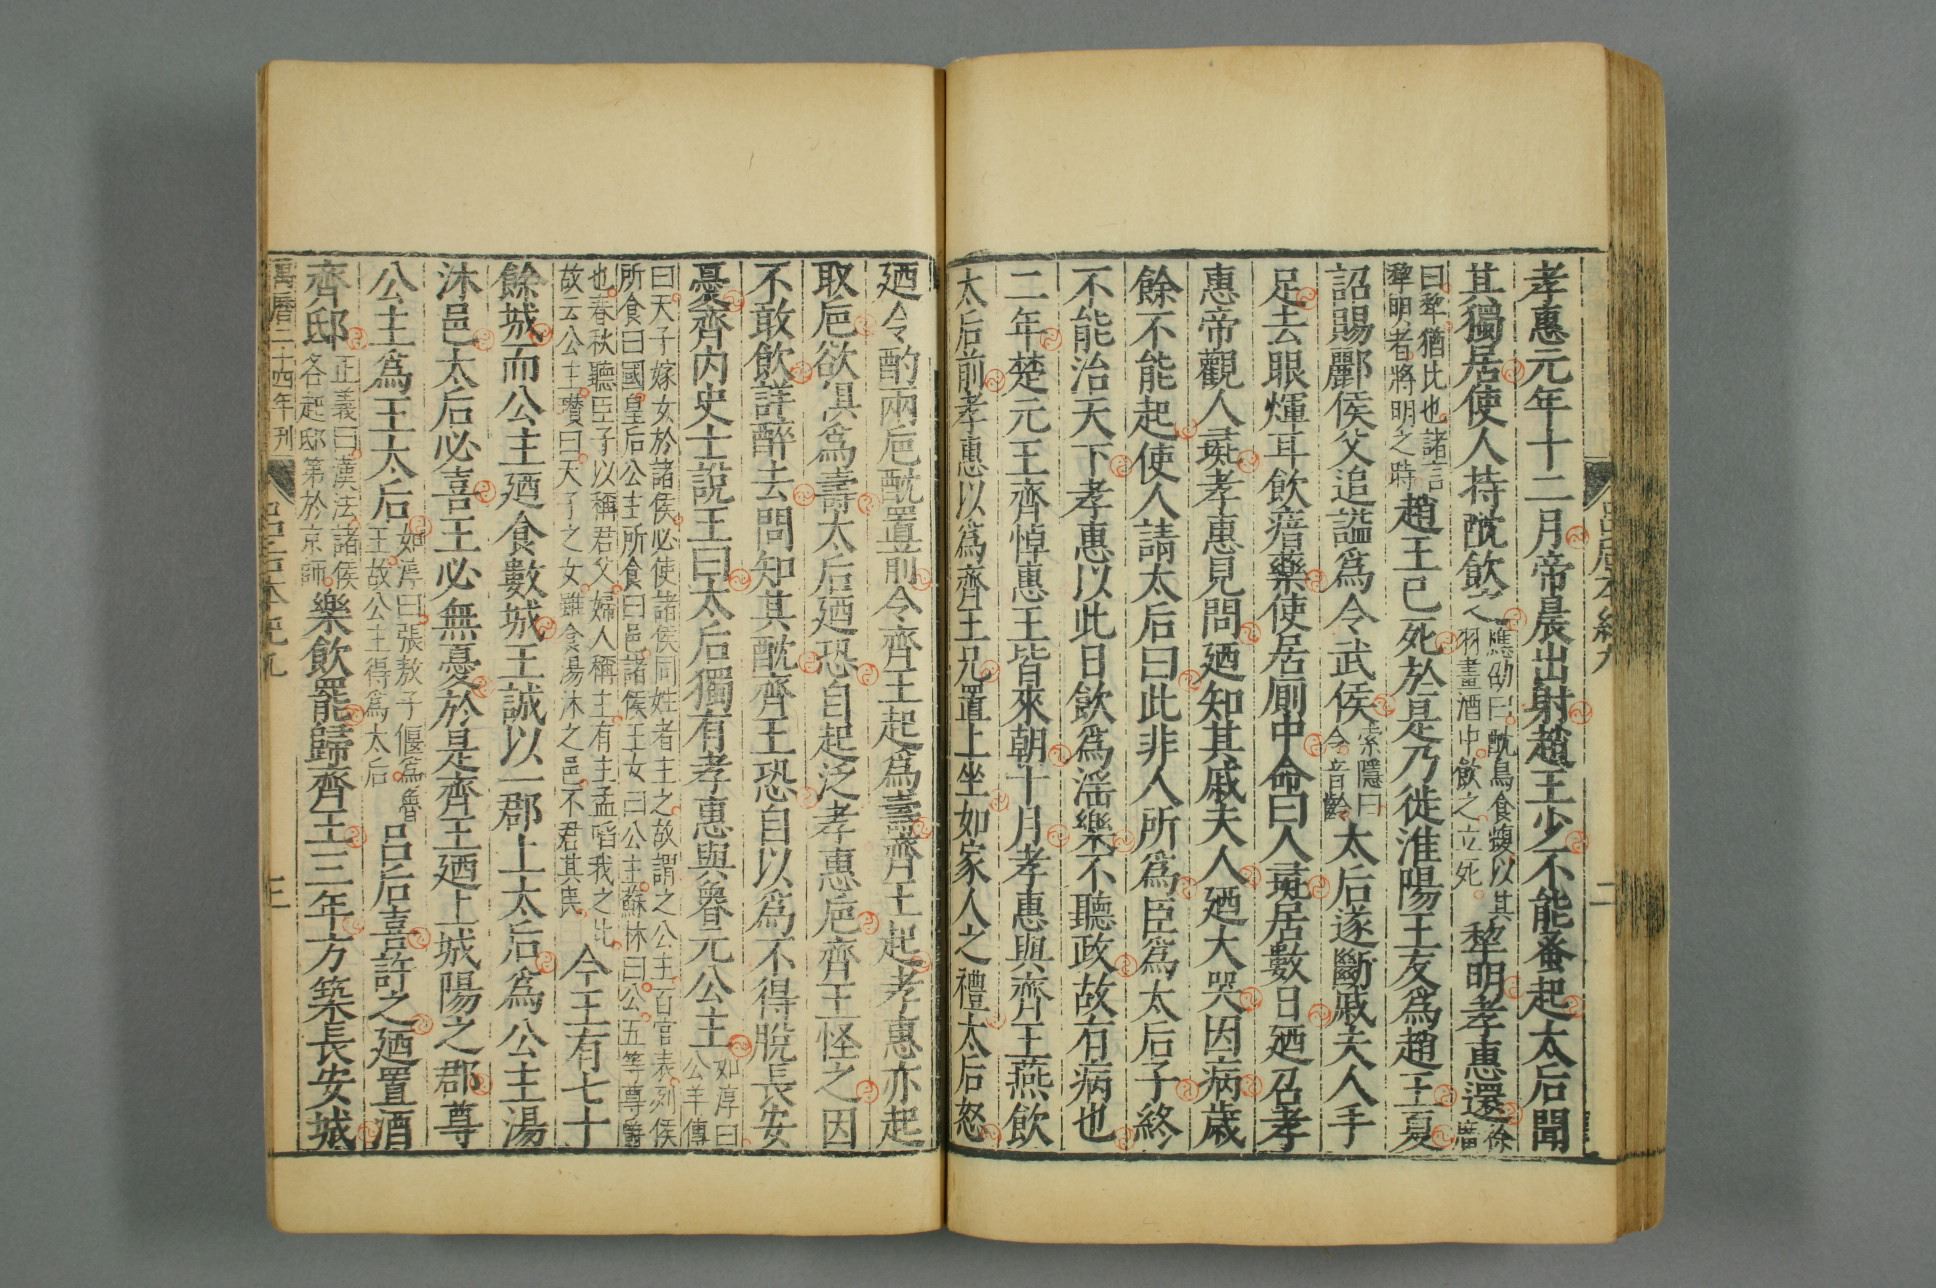 呂后本紀九
二
孝惠元年十二月帝晨出射趙王少不能蚤起太后聞
其獨居使人持酖飮之應劭曰酖鳥食蝮以其羽畫酒中飮之立死犂明孝惠還徐廣
曰犂猶比也諸言犂明者將明之時趙王已死於是乃徙淮陽王友爲趙王夏
詔賜酈侯父追謚爲令武侯索隱曰令音齡太后遂斷戚夫人手
足去眼煇耳飮瘖藥使居厠中命曰人彘居數日廼召孝
惠帝觀人彘孝惠見問廼知其戚夫人廼大哭因病歲
餘不能起使人請太后曰此非人所爲臣爲太后子終
不能治天下孝惠以此日飮爲滛樂不聽政故有病也
二年楚元王齊悼惠王皆來朝十月孝惠與齊王燕飮
太后前孝惠以爲齊王兄置上坐如家人之禮太后怒
廼令酌兩巵酖置前令齊王起爲壽齊王起孝惠亦起
取巵欲俱爲壽太后廼恐自起泛孝惠巵齊王怪之因
不敢飮詳醉去問知其酖齊王恐自以爲不得脫長安
憂齊內史士說王曰太后獨有孝惠與魯元公主如淳曰公羊傳
曰天子嫁女於諸侯必使諸侯同姓者主之故謂之公主百官表列侯所食曰國皇后公主所食曰邑諸侯王女曰公主蘇林曰公五等尊爵
也春秋聽臣子以稱君父婦人稱主有主孟啗我之比故云公主瓚曰天子之女雖食湯沐之邑不君其民今王有七十
餘城而公主廼食數城王誠以一郡上太后爲公主湯
沐邑太后必喜王必無憂於是齊王廼上城陽之郡尊
公主爲王太后如淳曰張敖子偃爲魯王故公主得爲太后呂后喜許之廼置酒
齊邸正義曰漢法諸侯各起邸第於京師樂飮罷歸齊王三年方築長安城
萬曆二十四年刊
呂后本紀九
三